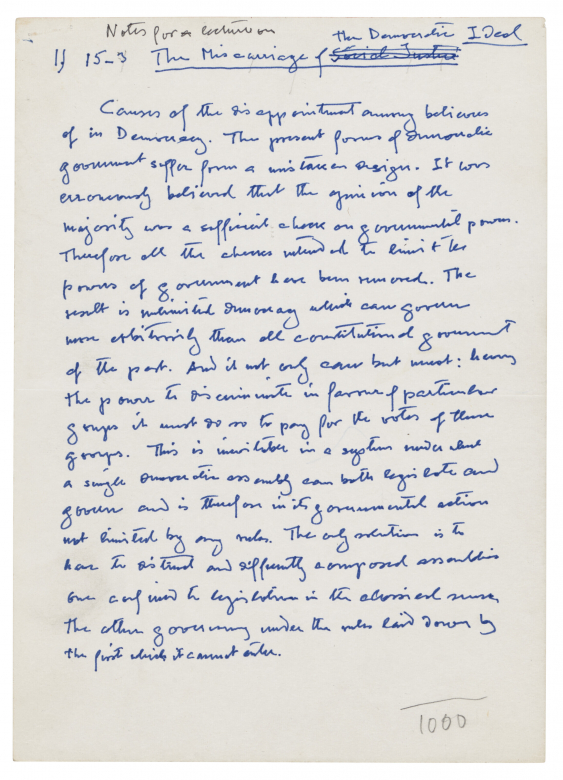 Notes for a lecture on
the Democratic Ideal
1) 15-3 The Miscarriage of Social Justice
Causes of the disappointment among believers
of in Democracy. The present forms of democratic
government suffer form a mistaken design. It was
erroneously believed that the opinion of the
majority was a sufficient check on governmental powers.
Therefore all the checks intended to limit the
powers of government have been removed. The
result is unlimited democracy which can govern
more arbitrarily than all constitutional government
of the past. And it not only can but must: having
the power to discriminate in favour of particular
groups it must do so to pay for the votes of these
groups. This is inevitable in a system under which
a single democratic assembly can both legislate and
govern and is therefore in its governmental action
not limited by any rules. The only solution is to
have to distinct and differently composed assemblies
one confined to legislation in the classical sense,
the other governing under the rules laid down by
the first which it cannot alter.
1000